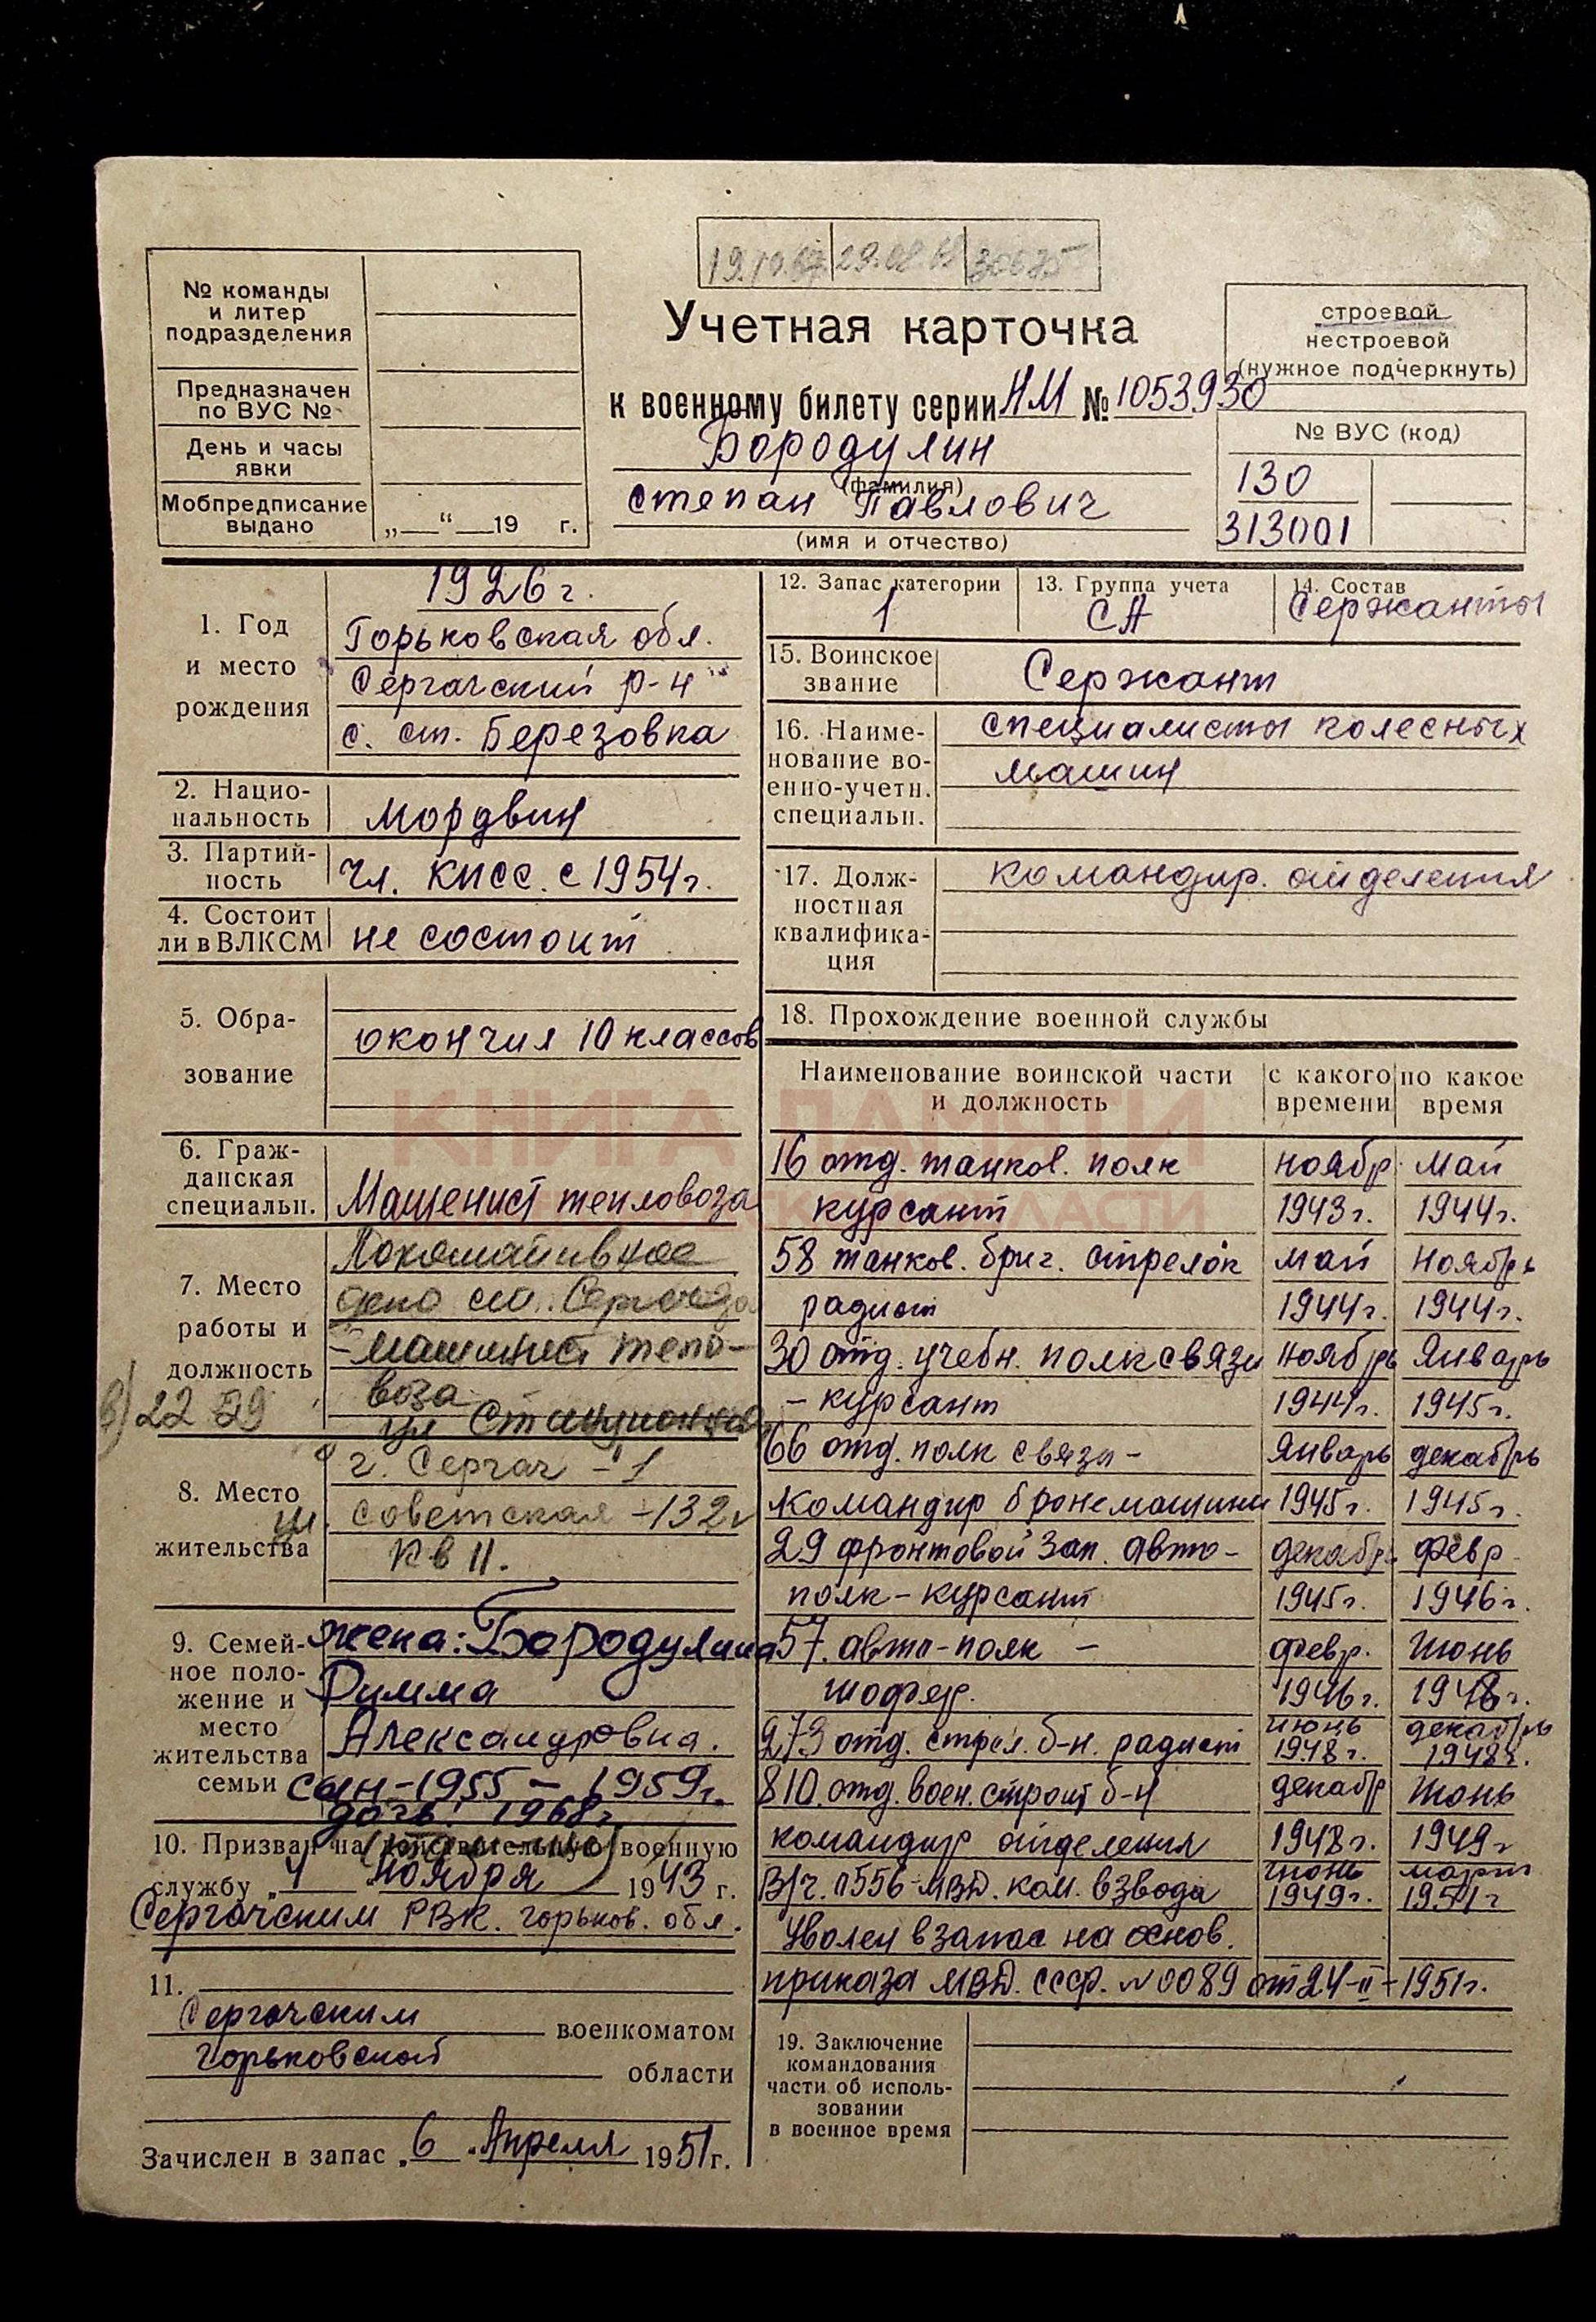 19.10.67 29.08.68 300675
№ команды
и литер
подразделения
Предназначен
по ВУС №
День и часы
явки
Мобпредписание
выдано
„ “ 19 г.
Учетная карточка
к военному билету серии НМ № 1053930
Бородулин
(фамилия)
Степан Павлович
(имя и отчество)
строевой
нестроевой
(нужное подчеркнуть)
№ ВУС (код)
130
313001
1. Год
и место
рождения
1926 г.
Горьковская обл.
Сергачский р-н
с. ст. Березовка
2. Нацио-
нальность
мордвин
3. Партий-
ность
чл. КПСС. с 1954 г.
4. Состоит
ли в ВЛКСМ
не состоит
5. Обра-
зование
окончил 10 классов
6. Граж-
данская
специальн.
Машенист тепловоза
7. Место
работы и
должность
Локомативное
депо ст. Сергач
-машинист тепло-
воза
22 29
ул Станционная
8. Место
жительства
г. Сергач - 1
ул. Советская -132
кв 11.
9. Семей-
ное поло-
жение и
место
жительства
семьи
жена: Бородулина
Римма
Александровна.
сын-1955 - 1959г.
дочь: 1968г
10. Призван на действительную военную
службу „4 ноября 1943 г.
Сергачским РВК. горьков. обл.
11.
Сергачским военкоматом
Горьковской области
Зачислен в запас „6 „Апреля 1951 г.
12. Запас категории
1
13. Группа учета
СА
14. Состав
Сержанты
15. Воинское
звание
Сержант
16. Наиме-
нование во-
енно-учетн.
специальн.
специалисты колесных
машин
17. Долж-
ностная
квалифика-
ция
командир. отделения
18. Прохождение военной службы
Наименование воинской части
и должность
с какого
времени
по какое
время
КНИГА ПАМЯТИ
16 отд. танков. полк ноябр. май
курсант 1943 г. 1944 г.
58 танков. бриг. стрелок май ноябрь
радист 1944 г. 1944 г.
30 отд. учебн. полк связи ноябрь январь
- курсант 1944 г. 1945 г.
66 отд. полк связи - январь декабрь
командир бронемашины 1945 г. 1945 г.
29 фронтовой зап. авто- декабрь февр
полк - курсант 1945 г. 1946 г.
57. авто-полк - февр. июнь
шофер. 1946 г. 1948 г.
273 отд. стрел. б-н. радист июнь 1948 г. декабрь 1948 г.
810. отд. воен. строит б-н декабр июнь
командир отделения 1948 г. 1949 г
В/ч. п556-МВД. ком. взвода июнь 1949 г. март 1951 г
Уволен в запас на основ.
приказа МВД. СССР. №0089 от 24-II-1951г.
19. Заключение
командования
части об исполь-
зовании
в военное время